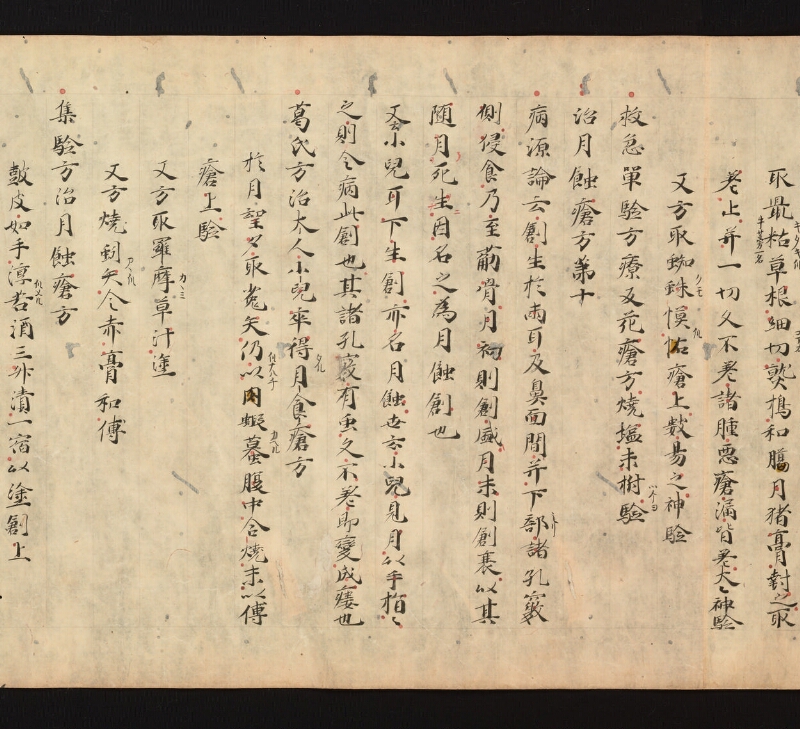 取㝡枯草根細切熟搗和臈月猪膏封之取
差止并一切久不差諸腫悪瘡漏皆差大〻神驗
又方取蜘蛛幙怗瘡上数易之神驗
救急單驗方療反花瘡方燒塩末樹驗
治月蝕瘡方第十
病源論云創生於兩耳及鼻面間并下部諸孔竅
側侵食乃至筋骨月初則創盛月末則創衰以其
随月死生因名之為月蝕創也
又云小兒耳下生創亦名月蝕世云小兒見月以手指〻
之則令病此創也其諸孔竅有虫久不差即變成瘻也
葛氏方治大人小兒卒得月食瘡方
於月望夕取菟矢仍以内蝦蟇腹中合燒末以傅
瘡上驗
又方取羅摩草汁塗
又方燒蚓矢令赤膏和傅
集驗方治月蝕瘡方
鼓皮如手淳苦酒三升漬一宿以塗創上